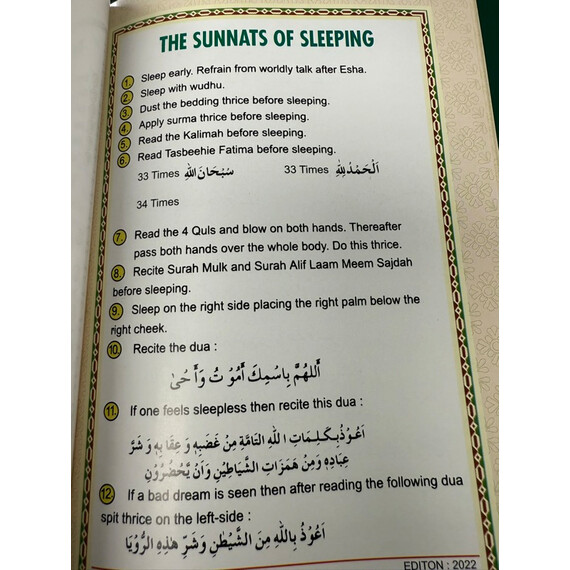 THE SUNNATS OF SLEEPING
1. Sleep early. Refrain from worldly talk after Esha.
2. Sleep with wudhu.
3. Dust the bedding thrice before sleeping.
4. Apply surma thrice before sleeping.
5. Read the Kalimah before sleeping.
6. Read Tasbeehie Fatima before sleeping.
33 Times سُبْحَانَ اللهِ 33 Times اَلْحَمْدُ لِلّٰهِ
34 Times
7. Read the 4 Quls and blow on both hands. Thereafter
pass both hands over the whole body. Do this thrice.
8. Recite Surah Mulk and Surah Alif Laam Meem Sajdah
before sleeping.
9. Sleep on the right side placing the right palm below the
right cheek.
10. Recite the dua :
اَللهُمَّ بِاسْمِكَ اَمُوْتُ وَاَحْىٰ
11. If one feels sleepless then recite this dua :
اَعُوْذُ بِكَلِمَاتِ اللهِ التَّامَّةِ مِنْ غَضَبِهٖ وَ عِقَابِهٖ وَ شَرِّ
عِبَادِهٖ وَمِنْ هَمَزَاتِ الشَّيَاطِيْنِ وَاَنْ يَّحْضُرُوْنِ
12. If a bad dream is seen then after reading the following dua
spit thrice on the left-side :
اَعُوْذُ بِاللهِ مِنَ الشَّيْطٰنِ وَشَرِّ هٰذِهِ الرُّوْيَا
EDITON : 2022